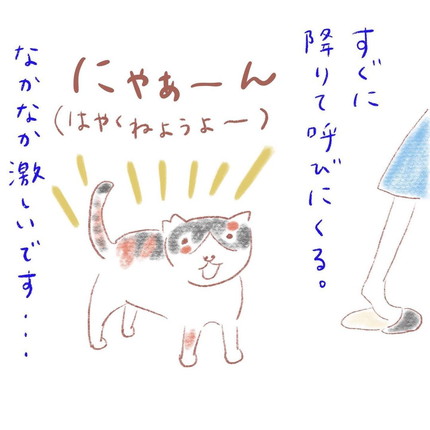 すぐに
降りて呼びにくる。
にゃぁーん
(はやくねようよ〜)
なかなか激しいです・・・